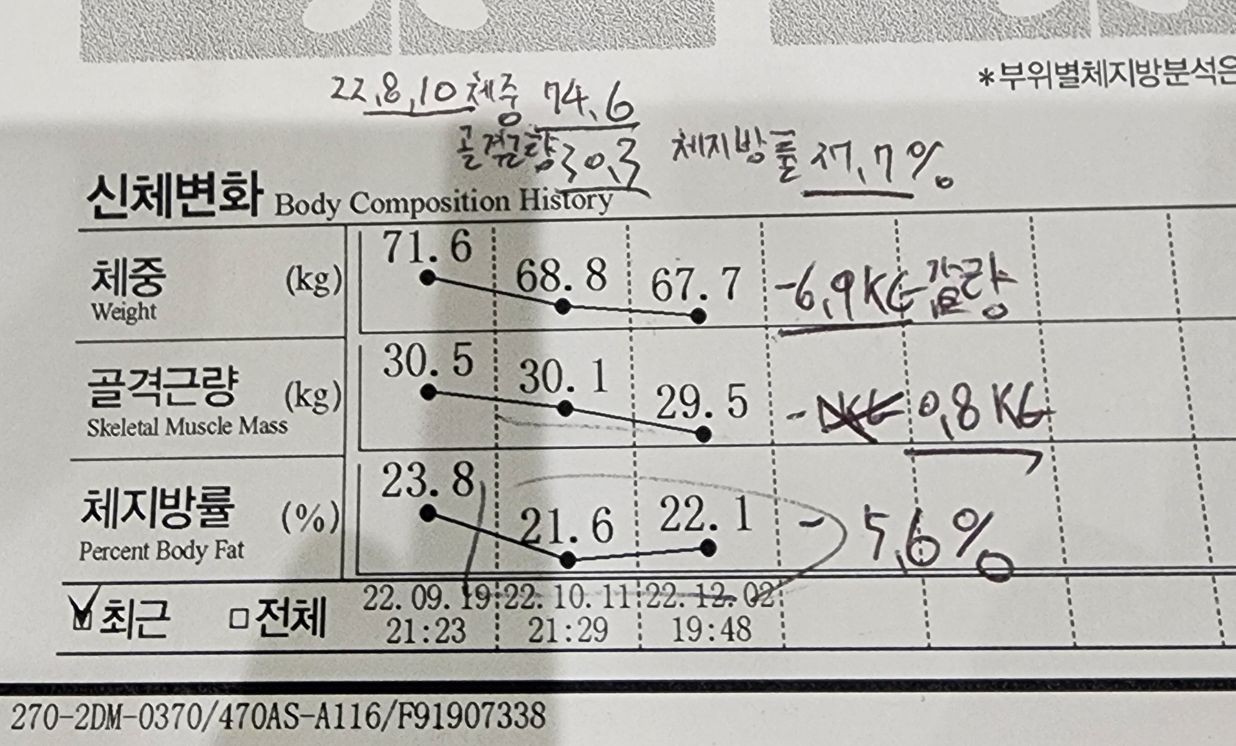 *부위별체지방분석은
22,8,10 체중 74.6
골격근량 30,3 체지방률 27,7%
신체변화 Body Composition History
체중 (kg) 71.6 68.8 67.7 -6,9KG 감량
Weight
골격근량 (kg) 30.5 30.1 29.5 - 0,8KG
Skeletal Muscle Mass
체지방률 (%) 23.8 21.6 22.1 - 5,6%
Percent Body Fat
최근 전체 22.09.19 22.10.11 22.12.02
21:23 21:29 19:48
270-2DM-0370/470AS-A116/F91907338